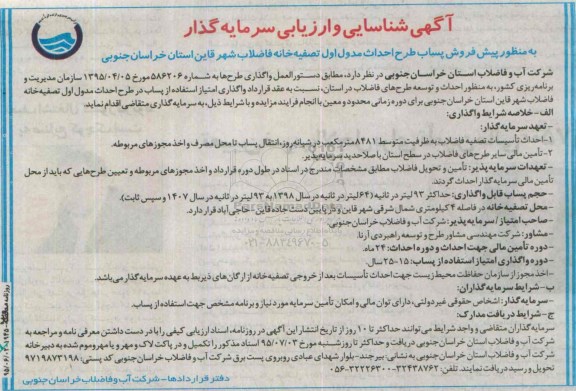 آگهی شناسایی و ارزیابی سرمایه گذار
به منظور پیش فروش پساب طرح احداث مدول اول تصفیه خانه فاضلاب شهر قاین استان خراسان جنوبی
شرکت آب و فاضلاب استان خراسان جنوبی در نظر دارد، مطابق دستورالعمل واگذاری طرح‌ها به شماره ۵۸۶۲۰۶ مورخ ۱۳۹۵/۰۴/۰۵ سازمان مدیریت و
برنامه ریزی کشور، به منظور احداث و توسعه طرح‌های فاضلاب در استان، نسبت به عقد قرارداد واگذاری امتیاز استفاده از پساب در طرح احداث مدول اول تصفیه خانه
فاضلاب شهر قاین استان خراسان جنوبی برای دوره زمانی محدود و معین با انجام فرایند مزایده و با شرایط ذیل، به سرمایه گذاری متقاضی اقدام نماید.
الف- خلاصه شرایط واگذاری:
- تعهد سرمایه گذار:
۱- احداث تأسیسات تصفیه فاضلاب به ظرفیت متوسط ۸۴۸۱ متر مکعب در شبانه روز، انتقال پساب تا محل مصرف و اخذ مجوزهای مربوطه.
۲- تأمین مالی سایر طرح‌های فاضلاب در سطح استان با صلاحدید سرمایه پذیر.
- تعهدات سرمایه پذیر: تأمین و تحویل فاضلاب مطابق مشخصات مندرج در اسناد در طول دوره قرارداد و اخذ مجوزهای مربوطه و تعیین طرح‌هایی که باید از محل
تأمین مالی سرمایه گذار احداث گردند.
- حجم پساب قابل واگذاری: حداکثر ۹۳ لیتر در ثانیه (۶۴ لیتر در ثانیه در سال ۱۳۹۸ به ۹۳ لیتر در ثانیه در سال ۱۴۰۷ و سپس ثابت).
- محل تصفیه خانه در فاصله ۴ کیلومتری شمال شرقی شهر قاین و در پایین دست جاده قاین - حاجی آباد قرار دارد.
- صاحب امتیاز / سرمایه پذیر: شرکت آب و فاضلاب خراسان جنوبی.
- مشاور: شرکت مهندسی مشاور طرح و توسعه راهبردی آرنا.
- دوره تأمین مالی جهت احداث و دوره احداث: ۲۴ ماه.
- دوره واگذاری امتیاز استفاده از پساب: ۱۵-۲۵ سال.
- اخذ مجوز از سازمان حفاظت محیط زیست جهت احداث تأسیسات بعد از خروجی تصفیه خانه از ارگان‌های ذیربط به عهده سرمایه گذار می‌باشد.
ب- شرایط سرمایه گذاران:
- سرمایه گذار: اشخاص حقوقی غیر دولتی، دارای توان مالی و امکان تأمین سرمایه مورد نیاز و برنامه مشخص جهت استفاده از پساب.
ج- شرایط دریافت مدارک:
سرمایه گذاران متقاضی و واجد شرایط می‌توانند حداکثر تا ۱۰ روز از تاریخ انتشار این آگهی در روزنامه، اسناد ارزیابی کیفی را با در دست داشتن معرفی نامه و مراجعه به
شرکت آب و فاضلاب استان خراسان جنوبی دریافت و حداکثر تا روز شنبه مورخ ۹۵/۰۷/۰۳ اسناد مذکور را تکمیل و در پاکت لاک و مهر و یا مهر و موم شده به دبیرخانه
شرکت آب و فاضلاب استان خراسان جنوبی به نشانی: بیرجند- بلوار شهدای عبادی روبروی پست برق شرکت آب و فاضلاب خراسان جنوبی کد پستی: ۹۷۱۹۸۷۳۱۹۸
تحویل و رسید دریافت نمایند. تلفن: ۳۲۴۳۸۷۶۲-۳۲۲۲۶۳۰۰-۰۵۶
دفتر قراردادها - شرکت آب و فاضلاب خراسان جنوبی